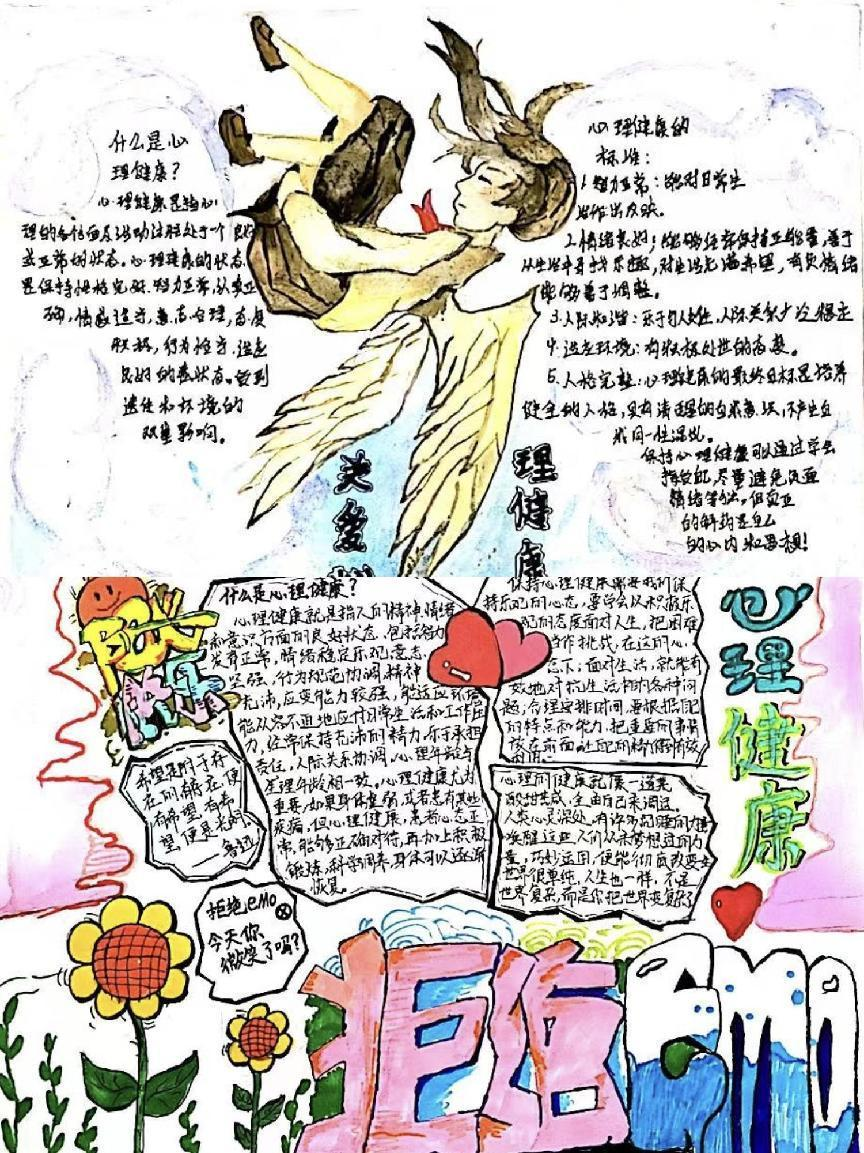 什么是心
理健康?
心理健康是指心
理的各个方面及活动过程处于一个良好
或正常的状态。心理健康的状态
是保持性格完好、智力正常、认知正
确,情感适当,意志合理,态度
积极,行为恰当,适应
良好的着状态。受到
遗传和环境的
双重影响。
心理健康的
标准:
1.智力正常:能对日常生
活作出反映。
2.情绪良好:能够经常保持正能量,善于
从生活中寻找乐趣,对生活充满希望,有负情绪
能够善于调整。
3.人际和谐:乐于与人交往,人际关系广泛稳定
4.适应环境:有积极处世的态度。
5.人格完整:心理健康的最终目标是培养
健全的人格,具有清醒的自我意识,不产生自
我同一性混乱。
保持心理健康可以通过学会
尽量避免负面
情绪等,但真正
的解药是自己
的心内和思想!
关爱
理健康
什么是心理健康?
心理健康就是指人的精神、情绪
和意识方面的良好状态,包括智力
发育正常,情绪稳定乐观,意志
坚强,行为规范协调,精神
充沛,应变能力较强,能适应环境,
能从容不迫地应付日常生活和工作压
力,经常保持充沛的精力,乐于承担
责任,人际关系协调,心理年龄与
生理年龄相一致。心理健康尤为
重要,如果身体衰弱,或者患有某些
疾病,但心理健康,患者心态正
常,能够正确对待,再加上积极
锻炼,科学调养,身体可以逐渐
恢复。
保持心理健康需要我们保
持乐观的心态,要学会以积极乐
观的态度面对人生,把困难
当作挑战,在这的心
态下,面对生活,就能有
效地对抗生活中的各种问
题;合理安排时间,要根据自己
的特点和能力,把重要的事情
放在前面
心理的健康就像一道菜
酸甜苦咸,全由自己来调适。
人类心灵深处,有许多沉睡的力量
唤醒这些人们从未梦想过的力
量,巧妙运用,便能彻底改变
世界很单纯,人生也一样,不是
世界复杂,而是你把世界变复杂了
希望是附于存
在的,有存在,便
有希望,有希
望,便是光明。
——鲁迅
拒绝emo
今天你
微笑了吗?
心理健康
拒绝emo